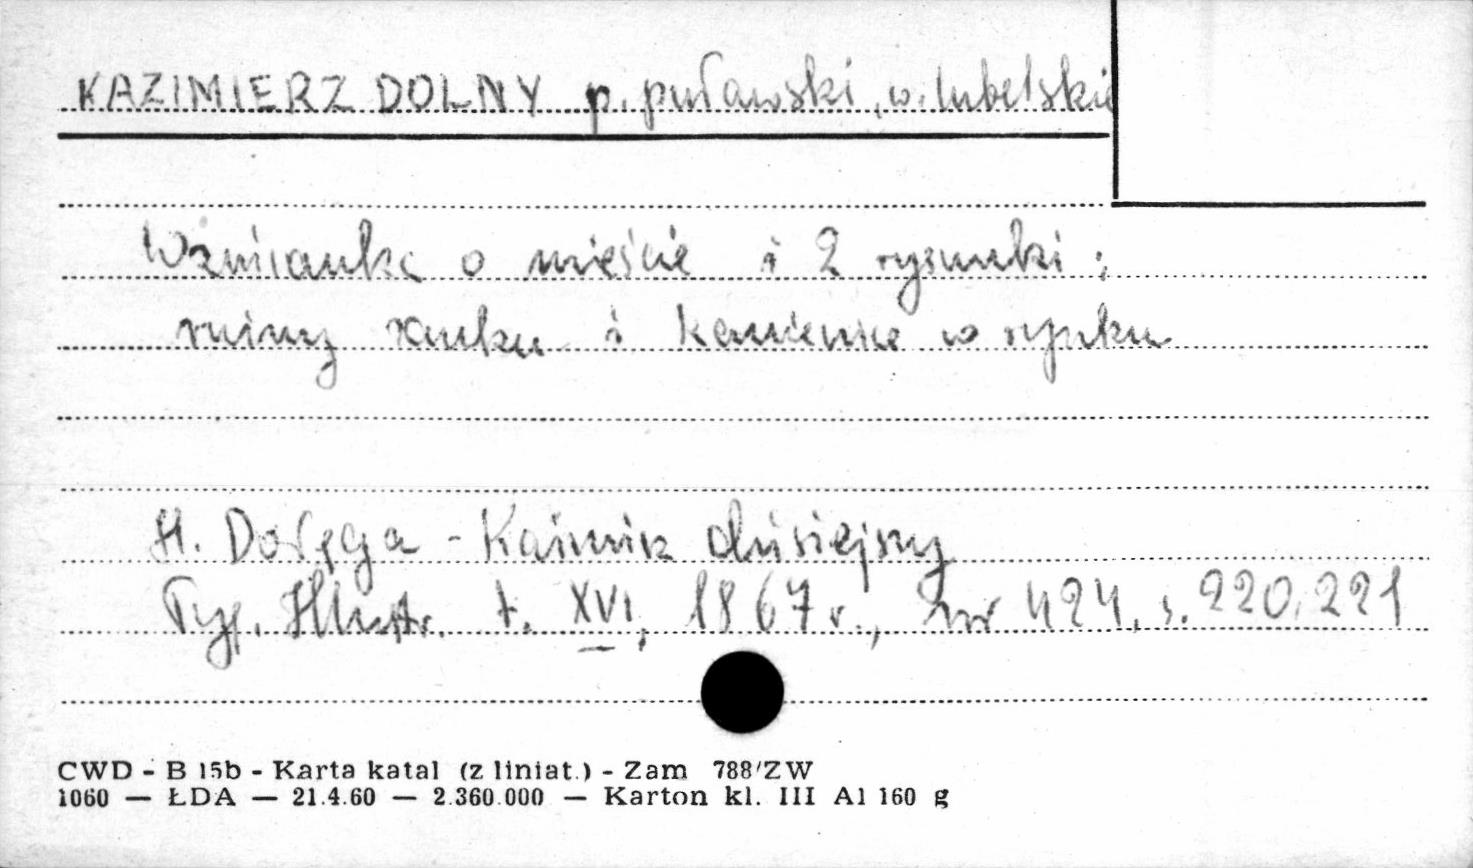 KAZIMIERZ DOLNY p. puławski, w. lubelskie
Wzmianka o mieście i 2 rysunki:
ruiny zamku i kamienice w rynku
H. Dołęga - Kaźmirz dzisiejszy
Tyg. Illustr. t. XVI, 1867 r., nr 424, s. 220, 221
CWD - B 15b - Karta katal (z liniat.) - Zam 788/ZW
1060 — ŁDA — 21.4.60 — 2.360.000 — Karton kl. III A1 160 g